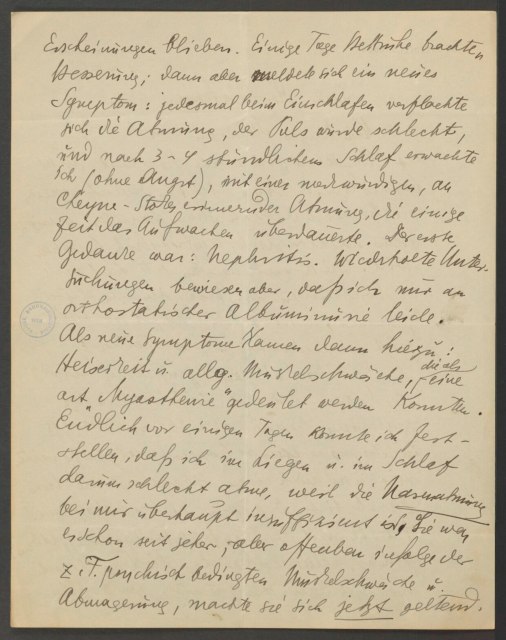 Erscheinungen blieben. Einige Tage Bettruhe brachten
Besserung; dann aber meldete sich ein neues
Symptom: jedesmal beim Einschlafen verflachte
sich die Atmung, der Puls wurde schlecht,
und nach 3-4 stündlichem Schlaf erwachte
ich (ohne Angst), mit einer merkwürdigen, an
Cheyne-Stokes erinnernder Atmung, die einige
Zeit das Aufwachen überdauerte. Der erste
Gedanke war: Nephritis. Wiederholte Unter-
suchungen bewiesen aber, daß ich nur an
orthostatischer Albuminurie leide.
Als neue Symptome kamen dann hiezu:
Heiserkeit u. allg. Muskelschwäche, die als „eine
art Myasthenie" gedeutet werden konnten.
Endlich vor einigen Tagen konnte ich fest-
stellen, daß ich im Liegen u. im Schlaf
darum schlecht atme, weil die Nasenatmung
bei mir überhaupt insuffizient ist. Sie war
es schon seit jeher, aber offenbar infolge der
z. T. psychisch bedingten Muskelschwäche u.
Abmagerung, machte sie sich jetzt geltend.